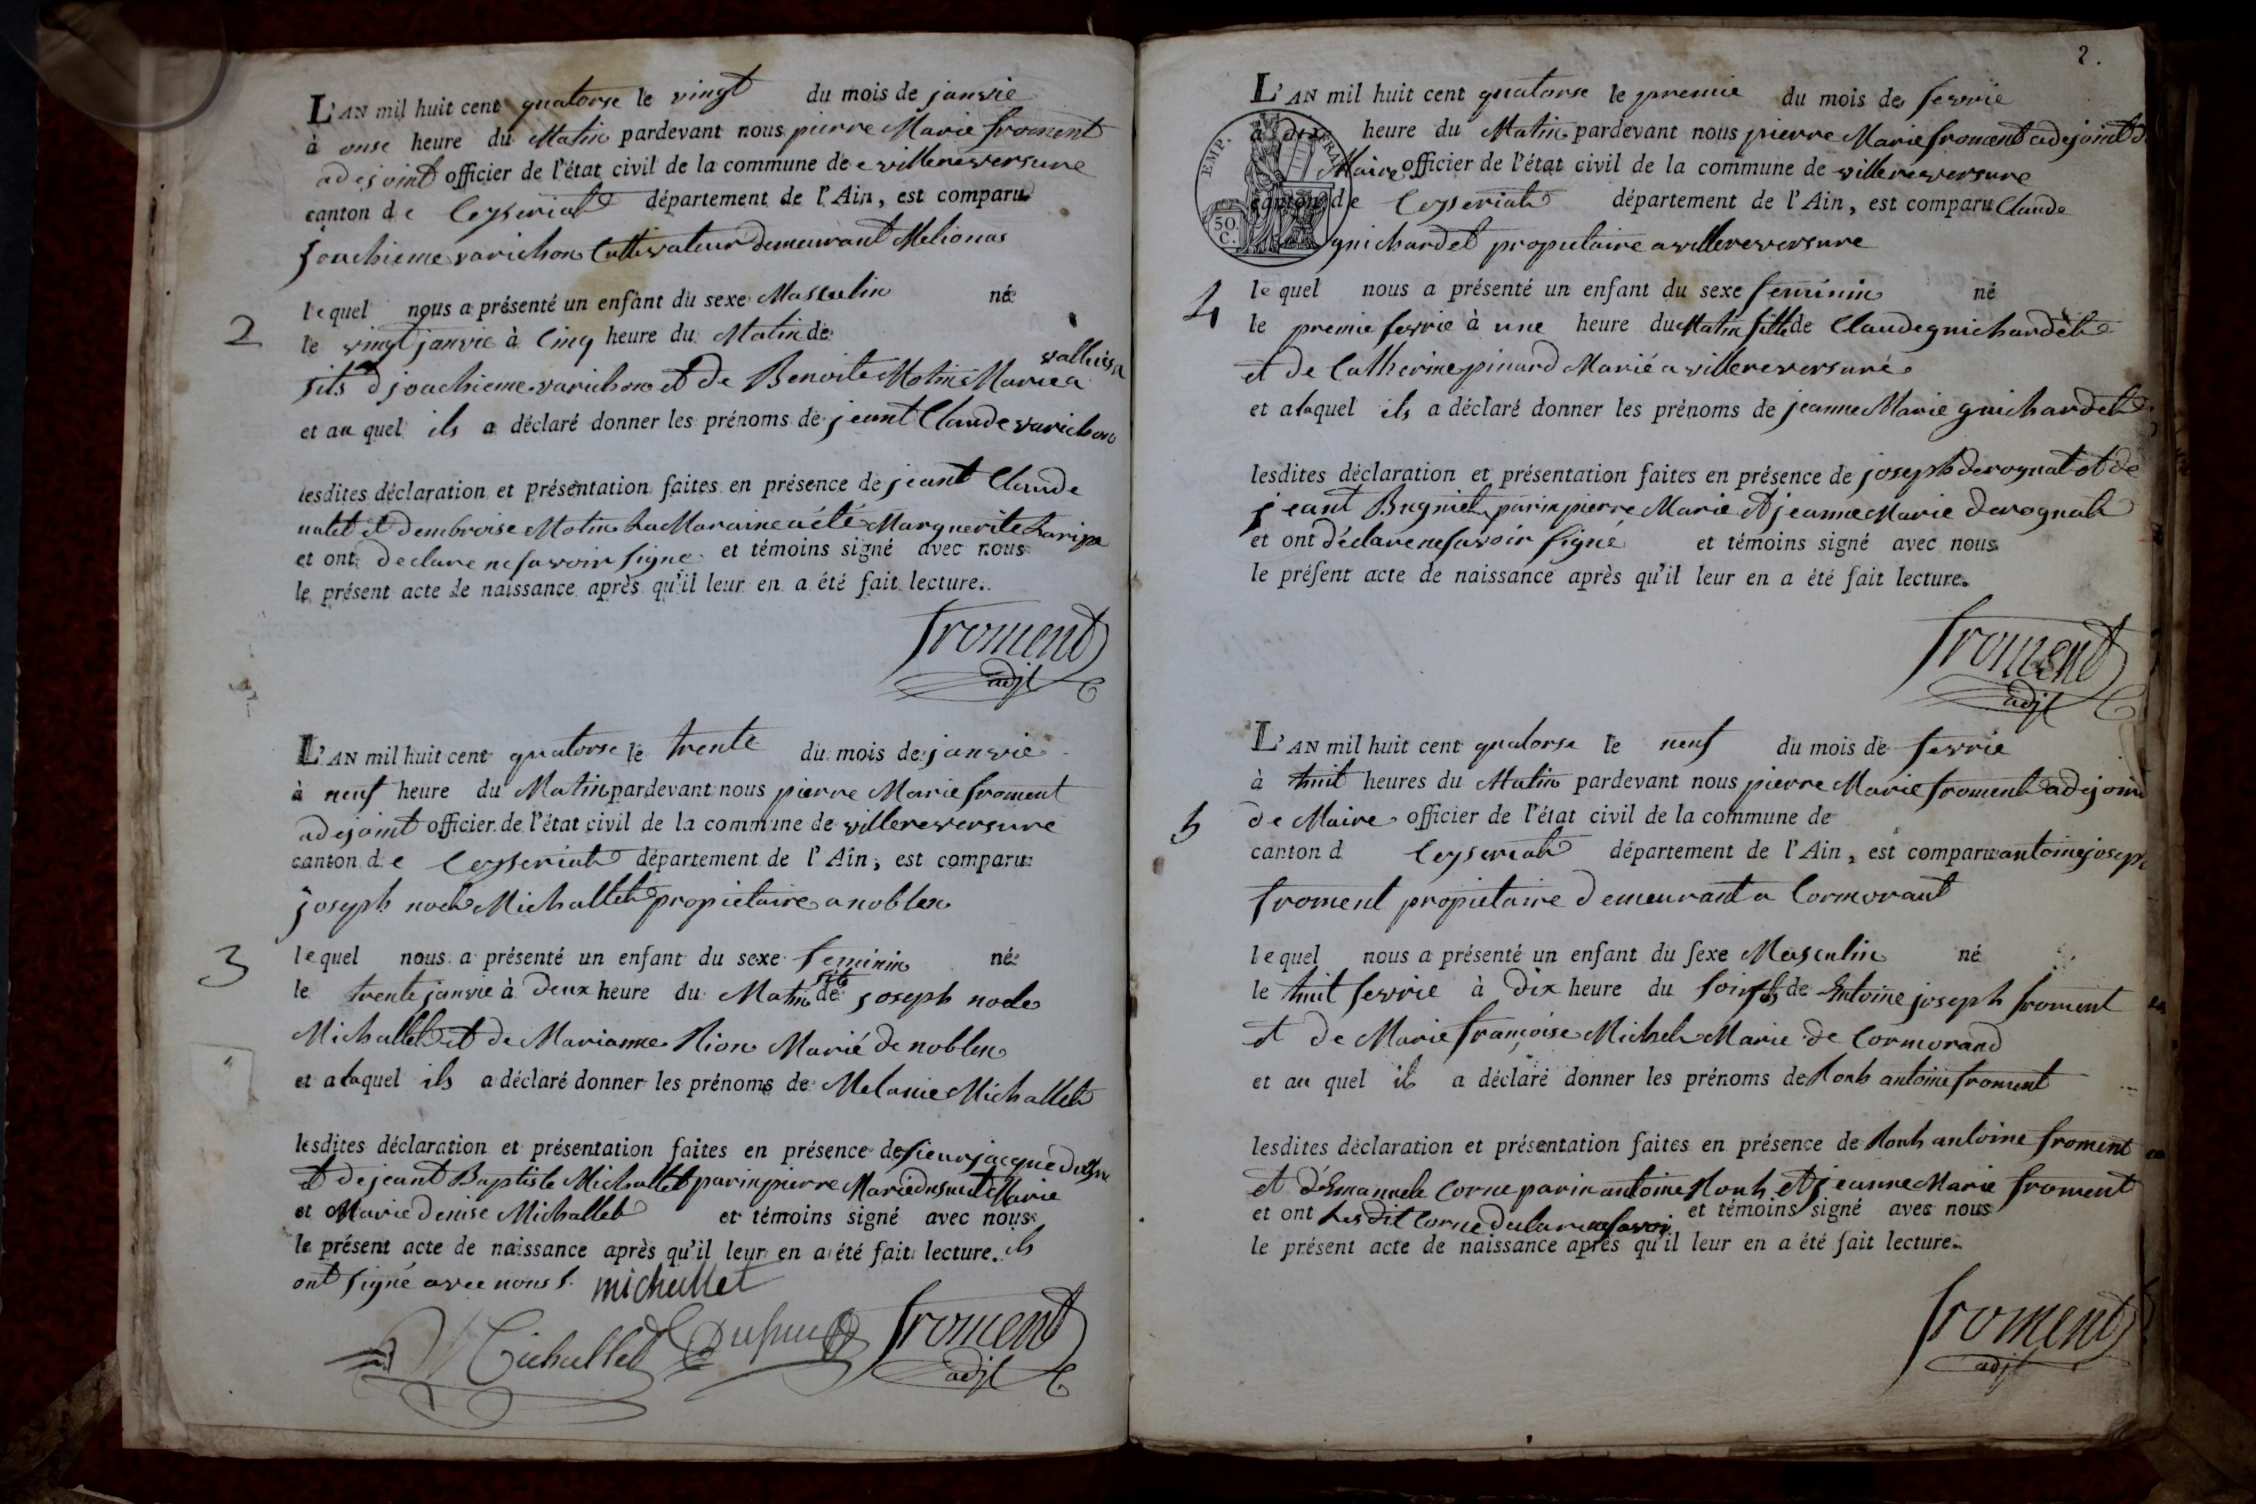 L'AN mil huit cent quatorse le vingt du mois de janvie
à onse heure du Matin pardevant nous pierre Marie froment
adejoint officier de l'état civil de la commune de villereversure
canton de Ceyseriat département de l'Ain, est comparu
jouchieme varichon Cultivateur demeurant Melionas
2
lequel nous a présenté un enfant du sexe Masculin né
le vingt janvie à Cinq heure du Matin de
fils d jouchieme varichon et de Benoite Motin Marie a
et au quel ils a déclaré donner les prénoms de jeant Claude varichon
lesdites déclaration et présentation faites en présence de jeant Claude
et dembroise Motin La Maraine a été Marguerite
et ont declare ne savoir signe et témoins signé avec nous
le présent acte de naissance après qu'il leur en a été fait lecture.
froment
adjt
L'AN mil huit cent quatorse le trente du mois de janvie
à neuf heure du Matin pardevant nous pierre Marie froment
adejoint officier de l'état civil de la commune de villereversure
canton de Ceyseriat département de l'Ain, est comparu
joseph noel Michallet propietaire a noblen
3
lequel nous a présenté un enfant du sexe feminin né
le trente janvie à Deux heure du Matin de joseph noele
Michallet et de Marianne Rion Marié de noblen
et a laquel ils a déclaré donner les prénoms de Melanie Michallet
lesdites déclaration et présentation faites en présence de sieur jacque
et de jeant Baptiste Michallet parin pierre Marie
et Marie denise Michallet et témoins signé avec nous
le présent acte de naissance après qu'il leur en a été fait lecture. ils
ont signé avec nous
michallet
Michallet froment
adjt
2.
L'AN mil huit cent quatorse le premie du mois de fevrie
à heure du Matin pardevant nous pierre Marie froment adejoint d
Maire officier de l'état civil de la commune de villereversure
canton de Ceyseriat département de l'Ain, est comparu Claude
guichardet proprietaire a villereversure
EMP. FRAN
50. C.
4
lequel nous a présenté un enfant du sexe feminin né
le premie fevrie à une heure du Matin fille de Claude guichardet
et de Catherine pinard Marié a villereversure
et a laquel ils a déclaré donner les prénoms de jeanne Marie guichardet
lesdites déclaration et présentation faites en présence de joseph derognat et de
jeant Bugniet parin pierre Marie Et jeanne Marie derognat
et ont déclare ne savoir signé et témoins signé avec nous
le présent acte de naissance après qu'il leur en a été fait lecture.
froment
adjt
L'AN mil huit cent quatorse le neuf du mois de fevrie
à huit heures du Matin pardevant nous pierre Marie froment adejoint
de Maire officier de l'état civil de la commune de
5
canton d Ceyseriat département de l'Ain, est comparu antoine joseph
froment propietaire demeurant a Cormorant
lequel nous a présenté un enfant du sexe Masculin né
le huit fevrie à Dix heure du soir fils de Entoine joseph froment
et de Marie françoise Michel Marie de Cormorand
et au quel il a déclaré donner les prénoms de antoine froment
lesdites déclaration et présentation faites en présence de antoine froment
et d'Emanuele Corne parin antoine Et jeanne Marie froment
et ont Lesdit Corne declare ne savoir et témoins signé avec nous
le présent acte de naissance après qu'il leur en a été fait lecture.
froment
adjt